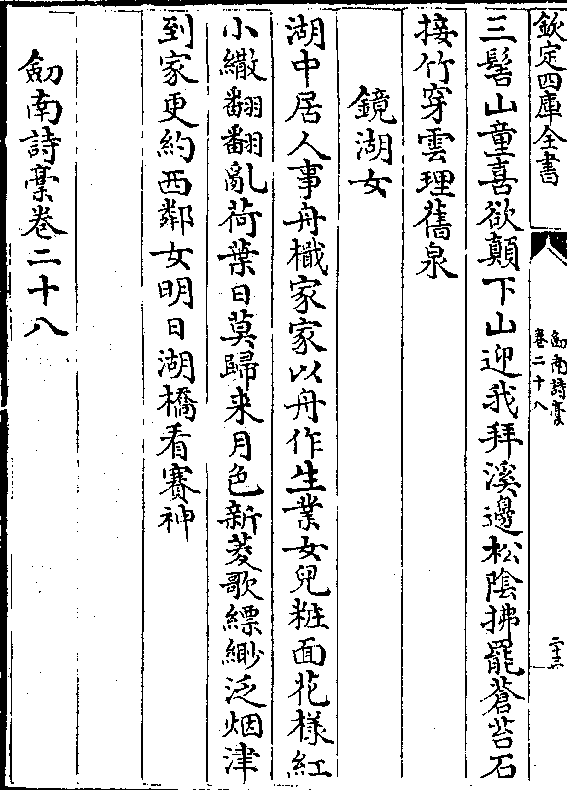 欽定四庫全書
劔南詩稾
卷二十八
二十三
三髻山童喜欲顛下山迎我拜溪邊松陰拂罷蒼苔石
接竹穿雲理舊泉
鏡湖女
湖中居人事舟檝家家以舟作生業女兒粧面花様紅
小繖翻翻亂荷葉日莫歸来月色新菱歌縹緲泛烟津
到家更約西鄰女明日湖橋看賽神
劔南詩稾卷二十八